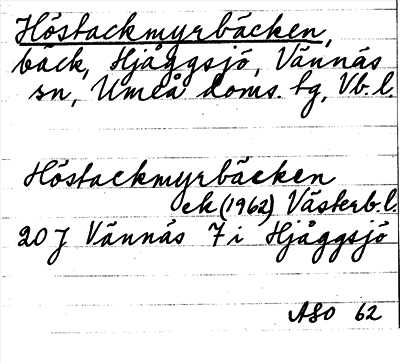 Höstackmyrbäcken,
bäck, Hjåggsjö, Vännäs
sn, Umeå doms. tg, Vb. l.
Höstackmyrbäcken
ek (1962) Västerb. l.
20 J Vännäs 7 i Hjåggsjö
ASO 62